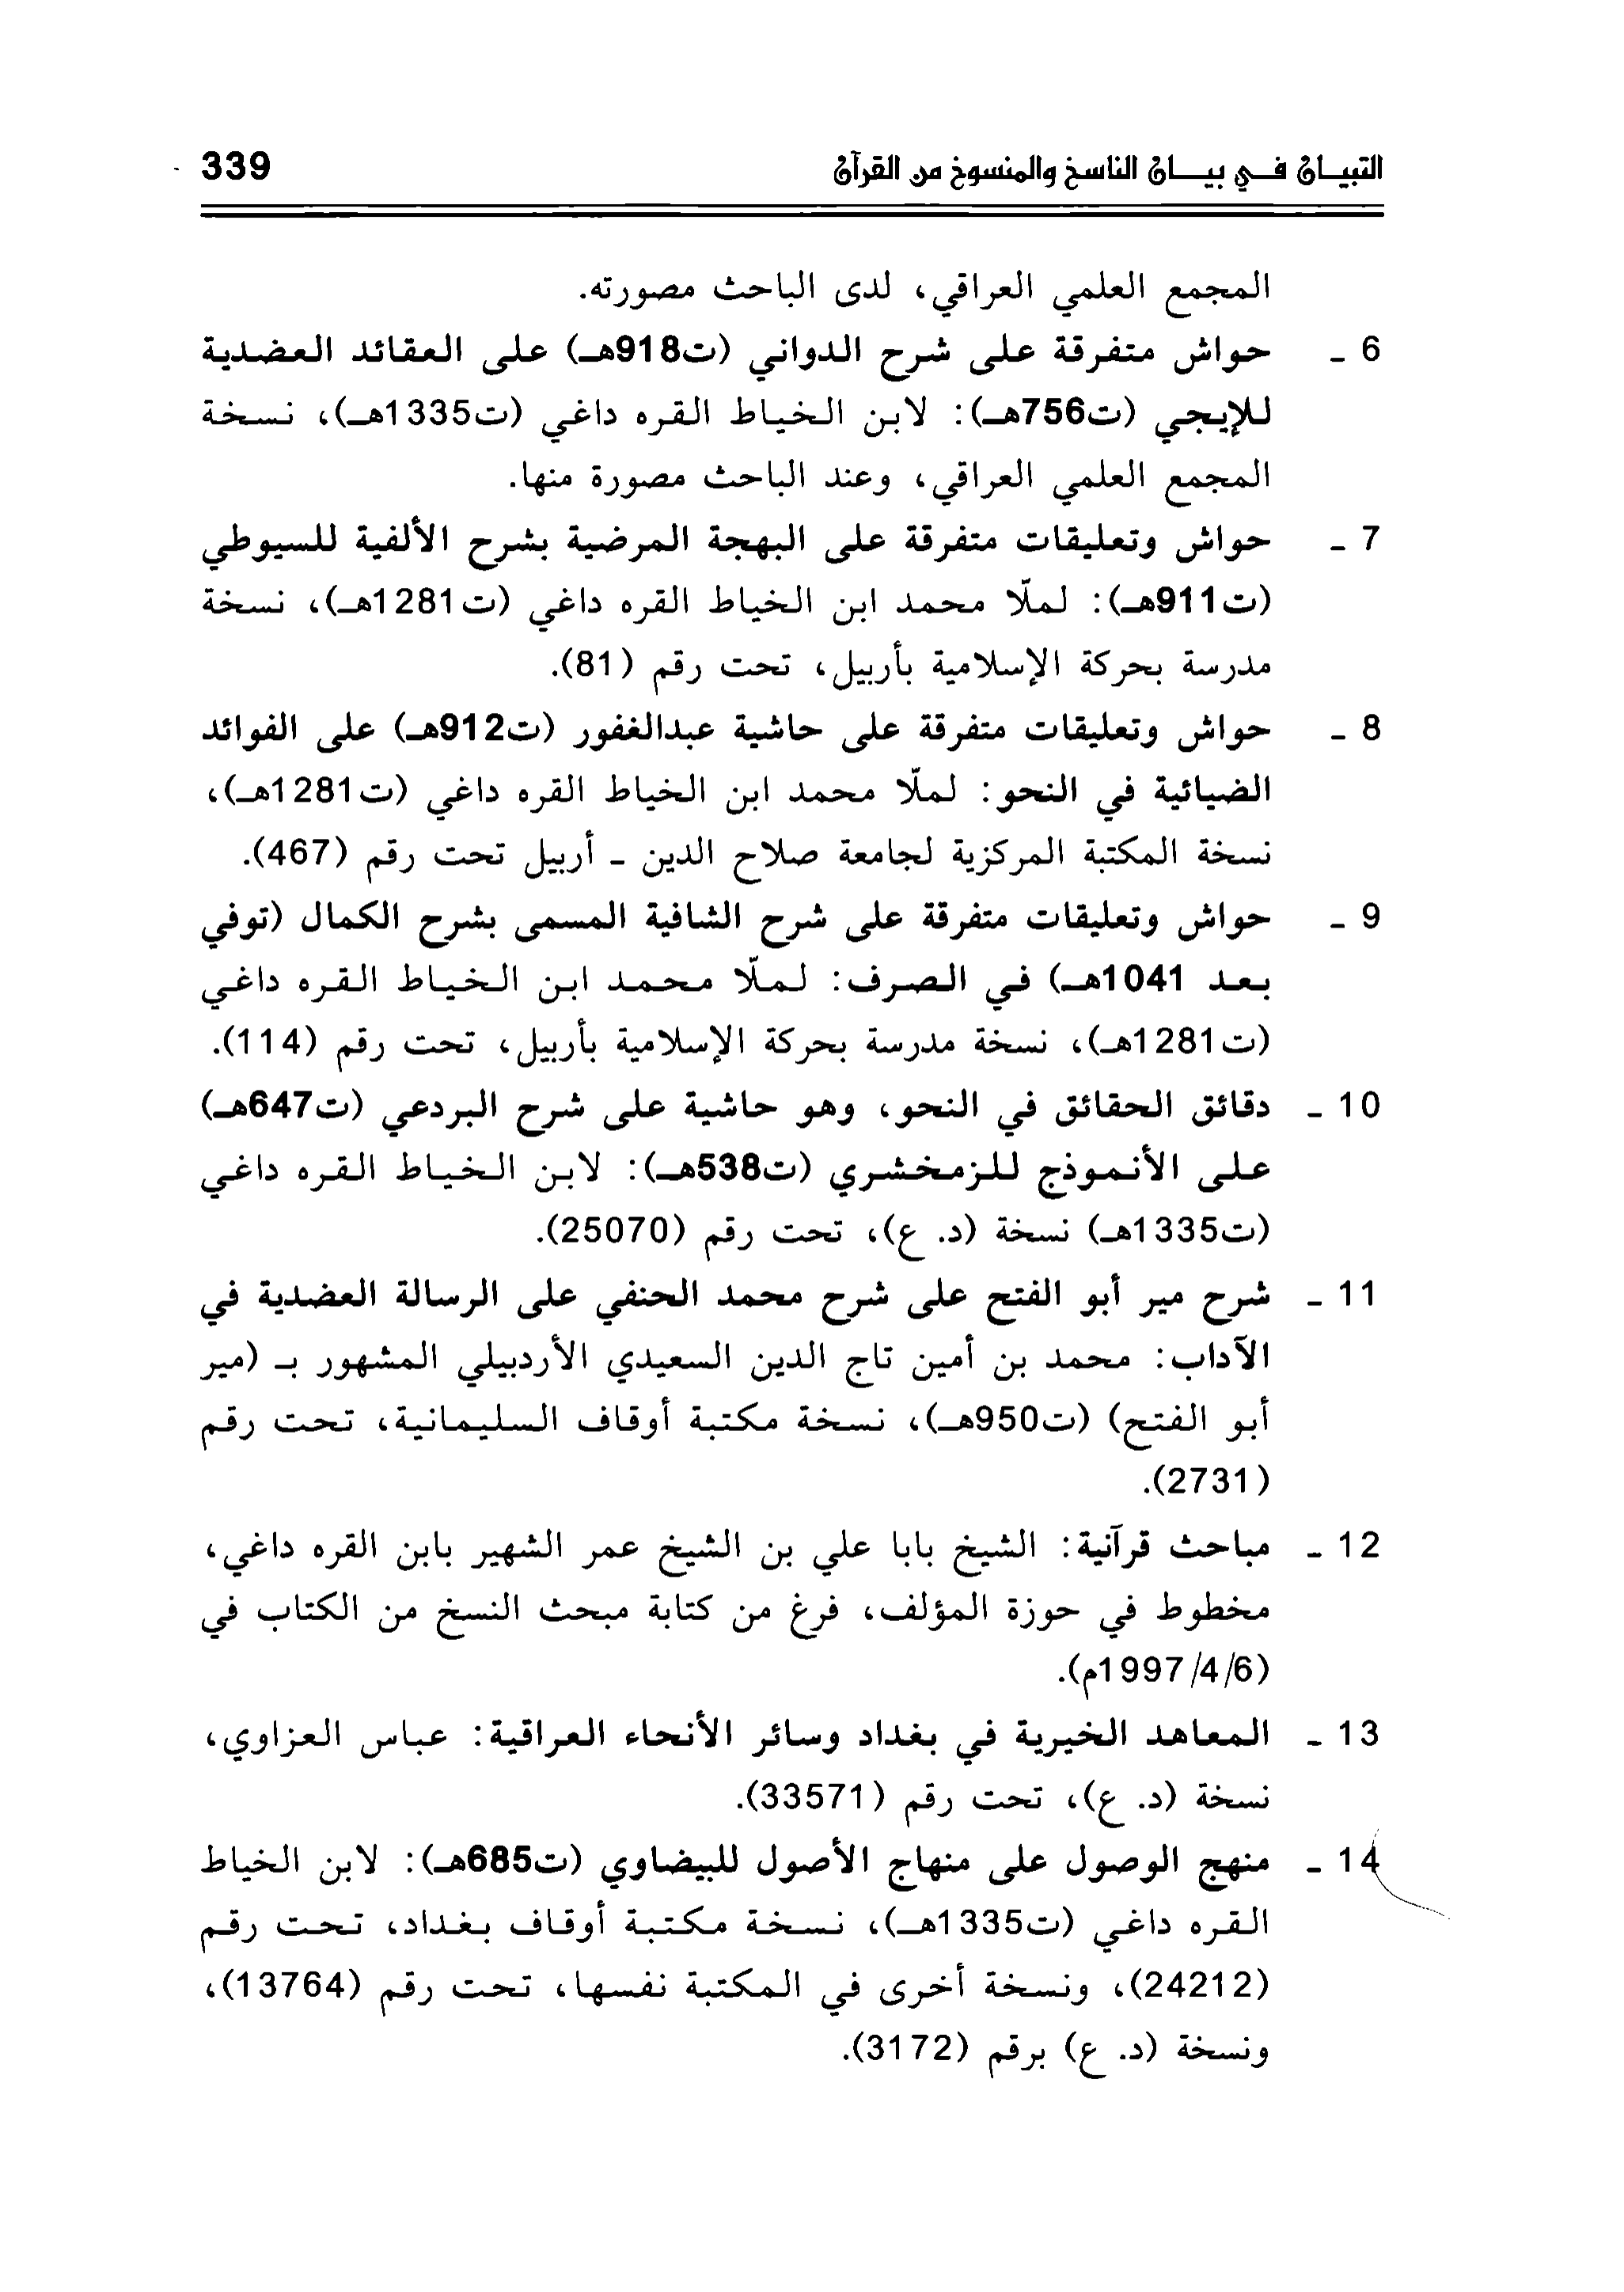 التبيان في بيان الناسخ والمنسوخ من القرآن 339
المجمع العلمي العراقي، لدى الباحث مصورته.
6 - حواش متفرقة على شرح الدواني (ت918هـ) على العقائد العضدية
للإيجي (ت756هـ): لابن الخياط القره داغي (ت1335هـ)، نسخة
المجمع العلمي العراقي، وعند الباحث مصورة منها.
7 - حواش وتعليقات متفرقة على البهجة المرضية بشرح الألفية للسيوطي
(ت911هـ): لملّا محمد ابن الخياط القره داغي (ت1281هـ)، نسخة
مدرسة بحركة الإسلامية بأربيل، تحت رقم (81).
8 - حواش وتعليقات متفرقة على حاشية عبدالغفور (ت912هـ) على الفوائد
الضيائية في النحو: لملّا محمد ابن الخياط القره داغي (ت1281هـ)،
نسخة المكتبة المركزية لجامعة صلاح الدين - أربيل تحت رقم (467).
9 - حواش وتعليقات متفرقة على شرح الشافية المسمى بشرح الكمال (توفي
بعد 1041هـ) في الصرف: لملّا محمد ابن الخياط القره داغي
(ت1281هـ)، نسخة مدرسة بحركة الإسلامية بأربيل، تحت رقم (114).
10 - دقائق الحقائق في النحو، وهو حاشية على شرح البردعي (ت647هـ)
على الأنموذج للزمخشري (ت538هـ): لابن الخياط القره داغي
(ت1335هـ) نسخة (د. ع)، تحت رقم (25070).
11 - شرح مير أبو الفتح على شرح محمد الحنفي على الرسالة العضدية في
الآداب: محمد بن أمين تاج الدين السعيدي الأردبيلي المشهور بـ (مير
أبو الفتح) (ت950هـ)، نسخة مكتبة أوقاف السليمانية، تحت رقم
(2731).
12 - مباحث قرآنية: الشيخ بابا علي بن الشيخ عمر الشهير بابن القره داغي،
مخطوط في حوزة المؤلف، فرغ من كتابة مبحث النسخ من الكتاب في
(1997/4/6م).
13 - المعاهد الخيرية في بغداد وسائر الأنحاء العراقية: عباس العزاوي،
نسخة (د. ع)، تحت رقم (33571).
14 - منهج الوصول على منهاج الأصول للبيضاوي (ت685هـ): لابن الخياط
القره داغي (ت1335هـ)، نسخة مكتبة أوقاف بغداد، تحت رقم
(24212)، ونسخة أخرى في المكتبة نفسها، تحت رقم (13764)،
ونسخة (د. ع) برقم (3172).